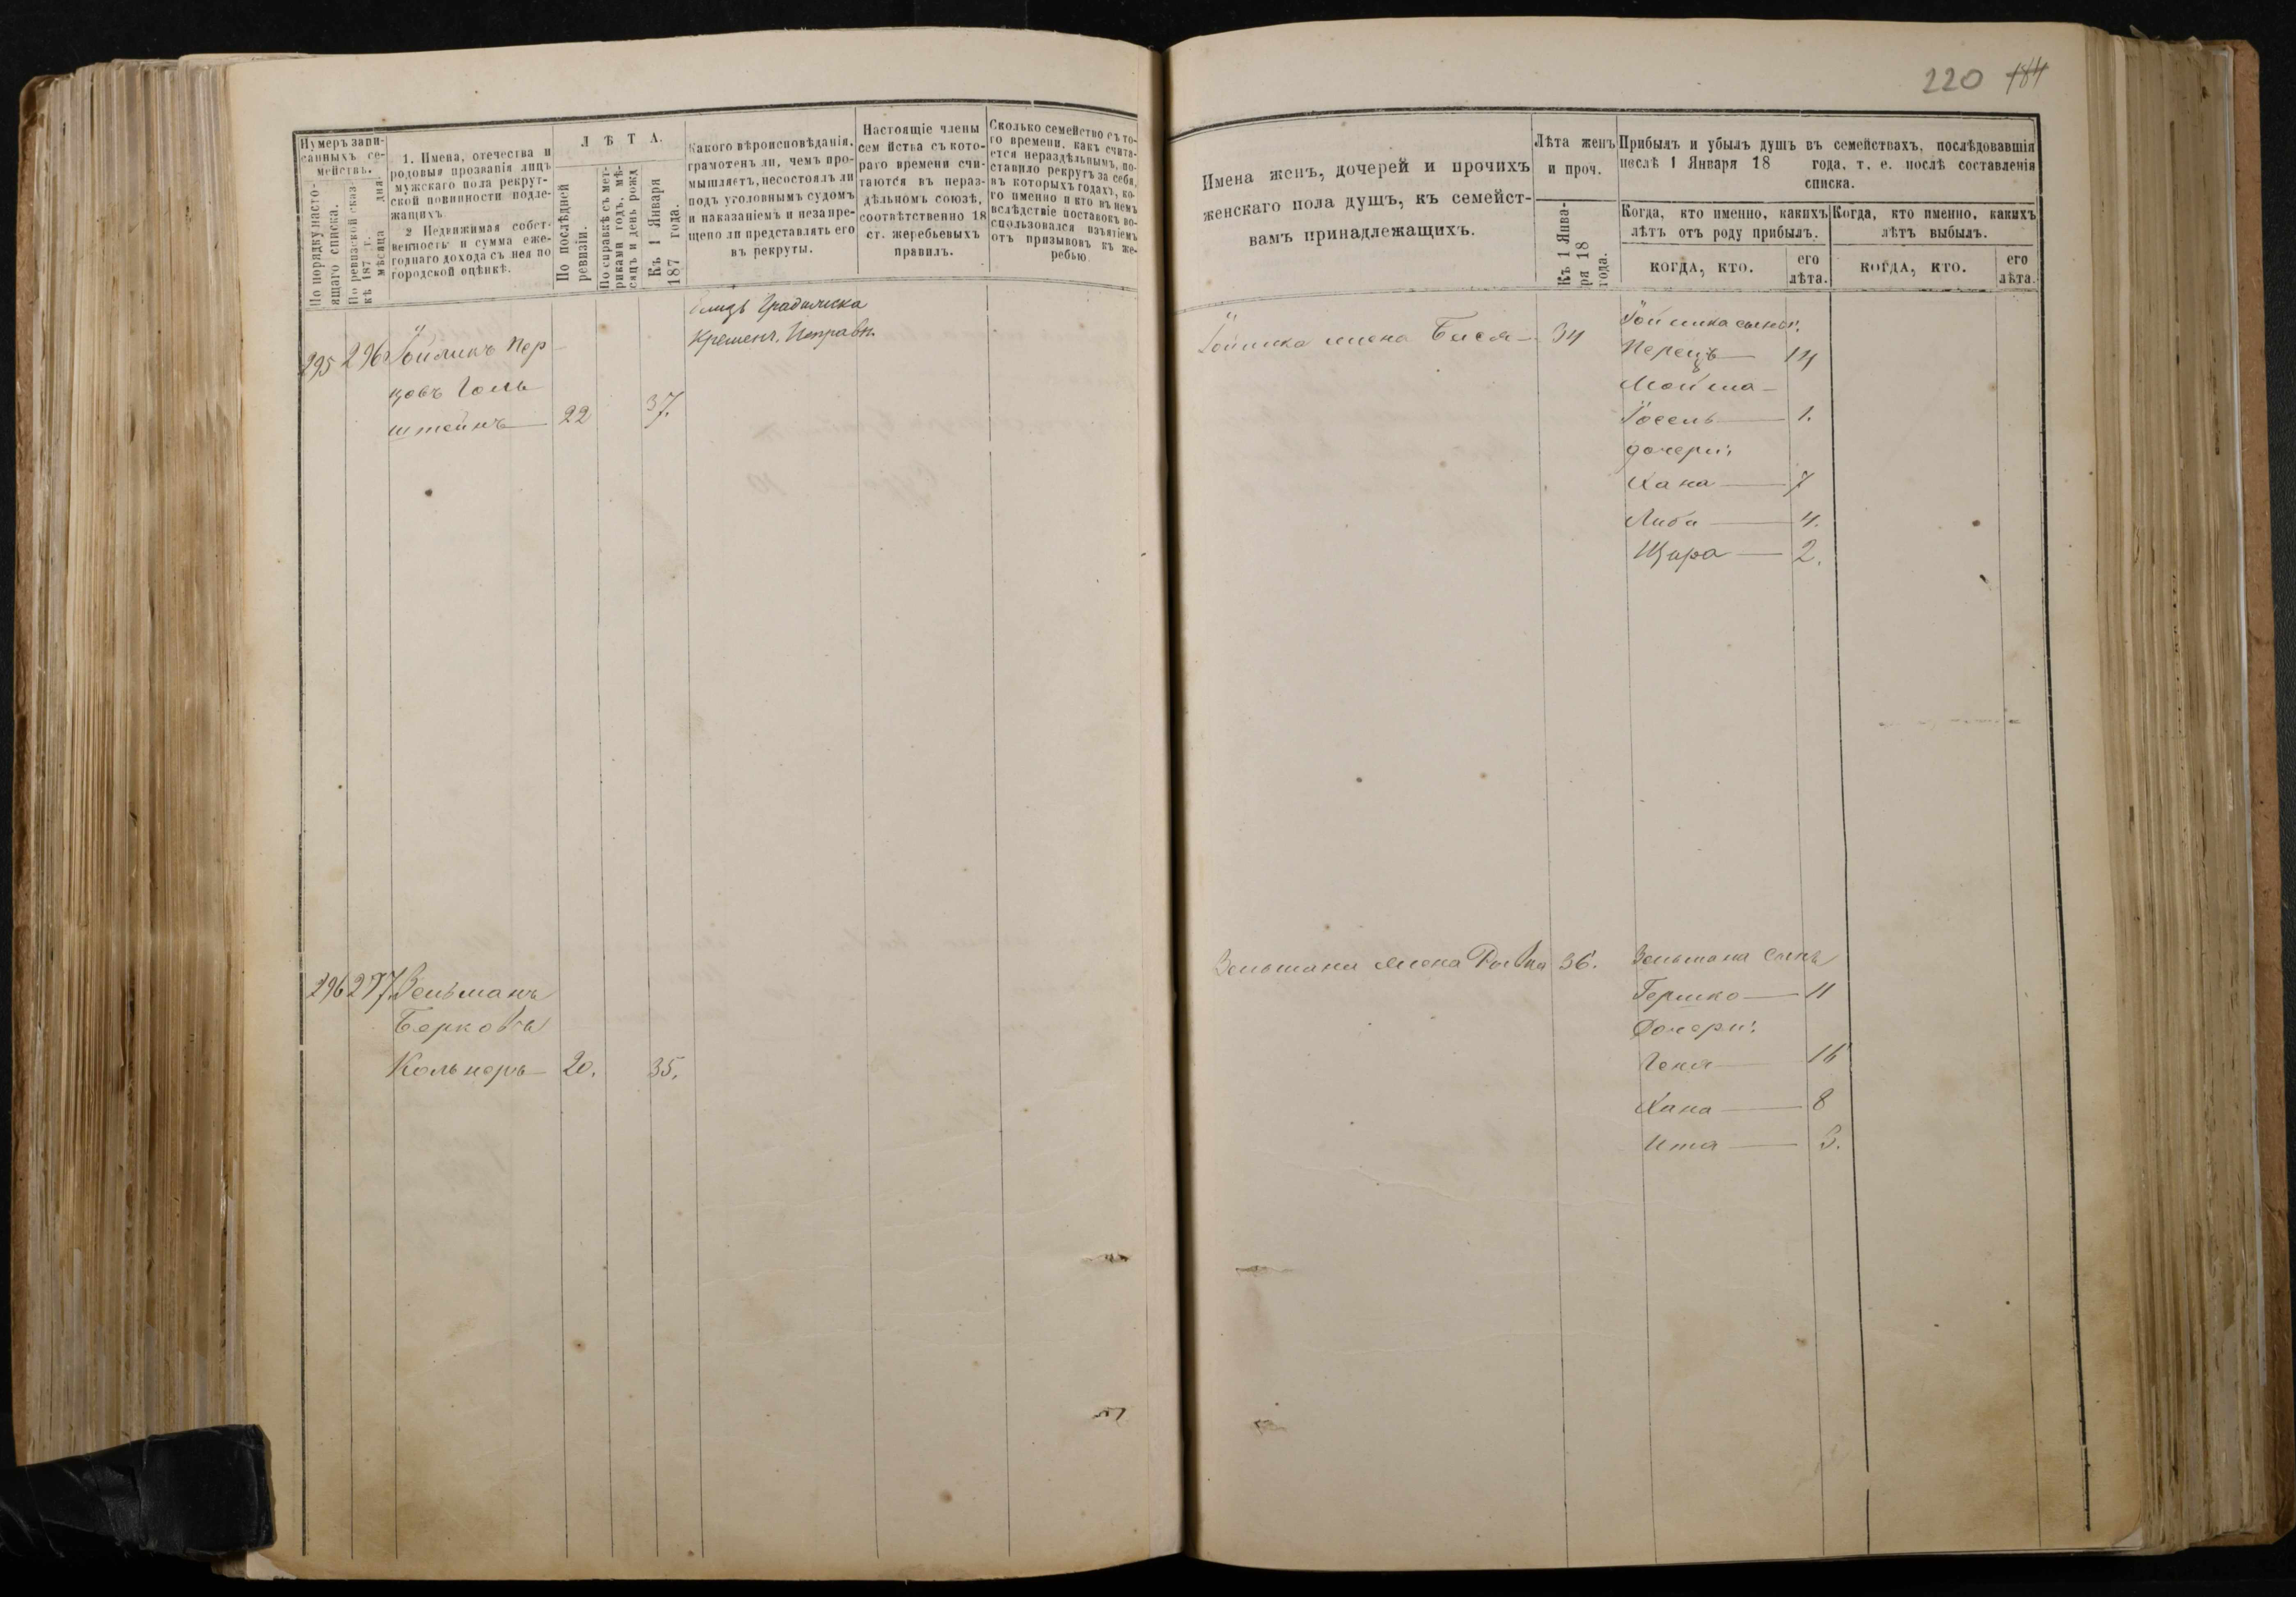 220 184
Нумеръ запи-
санныхъ се-
мействъ.
По порядку насто-
ящаго списка.
По ревизской сказ-
кѣ 187 г.
мѣсяца дня.
1. Имена, отечества и
родовыя прозванія лицъ
мужскаго пола рекрут-
ской повинности подле-
жащихъ.
2 Недвижимая собст-
венность и сумма еже-
годнаго дохода съ нея по
городской оцѣнкѣ.
ЛѢТА.
По послѣдней
ревизіи.
По справкѣ съ мет-
риками годъ, мѣ-
сяцъ и день рожд
Къ 1 Января
187 года.
Какого вѣроисповѣданія,
грамотенъ ли, чемъ про-
мышляетъ, несостоялъ ли
подъ уголовнымъ судомъ
и наказаніемъ и незапре-
щено ли представлять его
въ рекруты.
Настоящіе члены
сем йства съ кото-
раго времени счи-
таются въ нераз-
дѣльномъ союзѣ,
соотвѣтственно 18
ст. жеребьевыхъ
правилъ.
Сколько семейство съ то-
го времени, какъ счита-
ется нераздѣльнымъ, по-
ставило рекрутъ за себя,
въ которыхъ годахъ, ко-
го именно и кто въ немъ
вслѣдствіе поставокъ во-
спользовался изъятіемъ
отъ призывовъ къ же-
ребью
Имена женъ, дочерей и прочихъ
женскаго пола душъ, къ семейст-
вамъ принадлежащихъ.
Лѣта женъ
и проч.
Къ 1 Янва-
ря 18
года.
Прибылъ и убылъ душъ въ семействахъ, послѣдовавшія
послѣ 1 Января 18 года, т. е. послѣ составленія
списка.
Когда, кто именно, какихъ
лѣтъ отъ роду прибылъ.
Когда, кто именно, какихъ
лѣтъ выбылъ.
КОГДА, КТО.
его
лѣта.
КОГДА, КТО.
его
лѣта.
Градижска
Кременч. Исправн.
295 296 Пер
цовъ Голь
штейнъ 22 37.
жена Бася 34
Перецъ 14
Мойша
Іосель 1.
дочери:
Хана 7
Либа 4.
2.
296 297. Зельманъ
Берковъ
Кольнеръ 20. 35.
Зельмана жена 36.
Зельмана сынъ
Гершко 11
Дочери:
Геня 16
Хана 8
Ита 3.